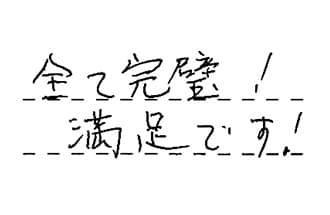 全て完璧！
満足です！